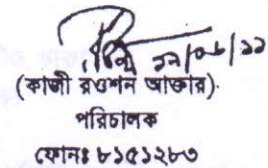 ২২/০৮/১১
(কাজী রওশন আক্তার)
পরিচালক
ফোনঃ ৮১৫১২৮৩